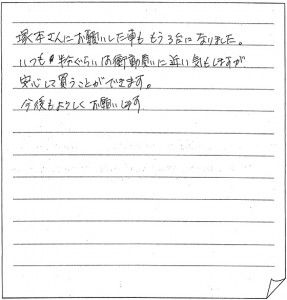 塚本さんにお願いした車も もう3台になりました。
いつも半分ぐらいは衝動買いに近い気もしますが
安心して買うことができます。
今後もよろしくお願いします